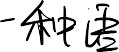 一种语